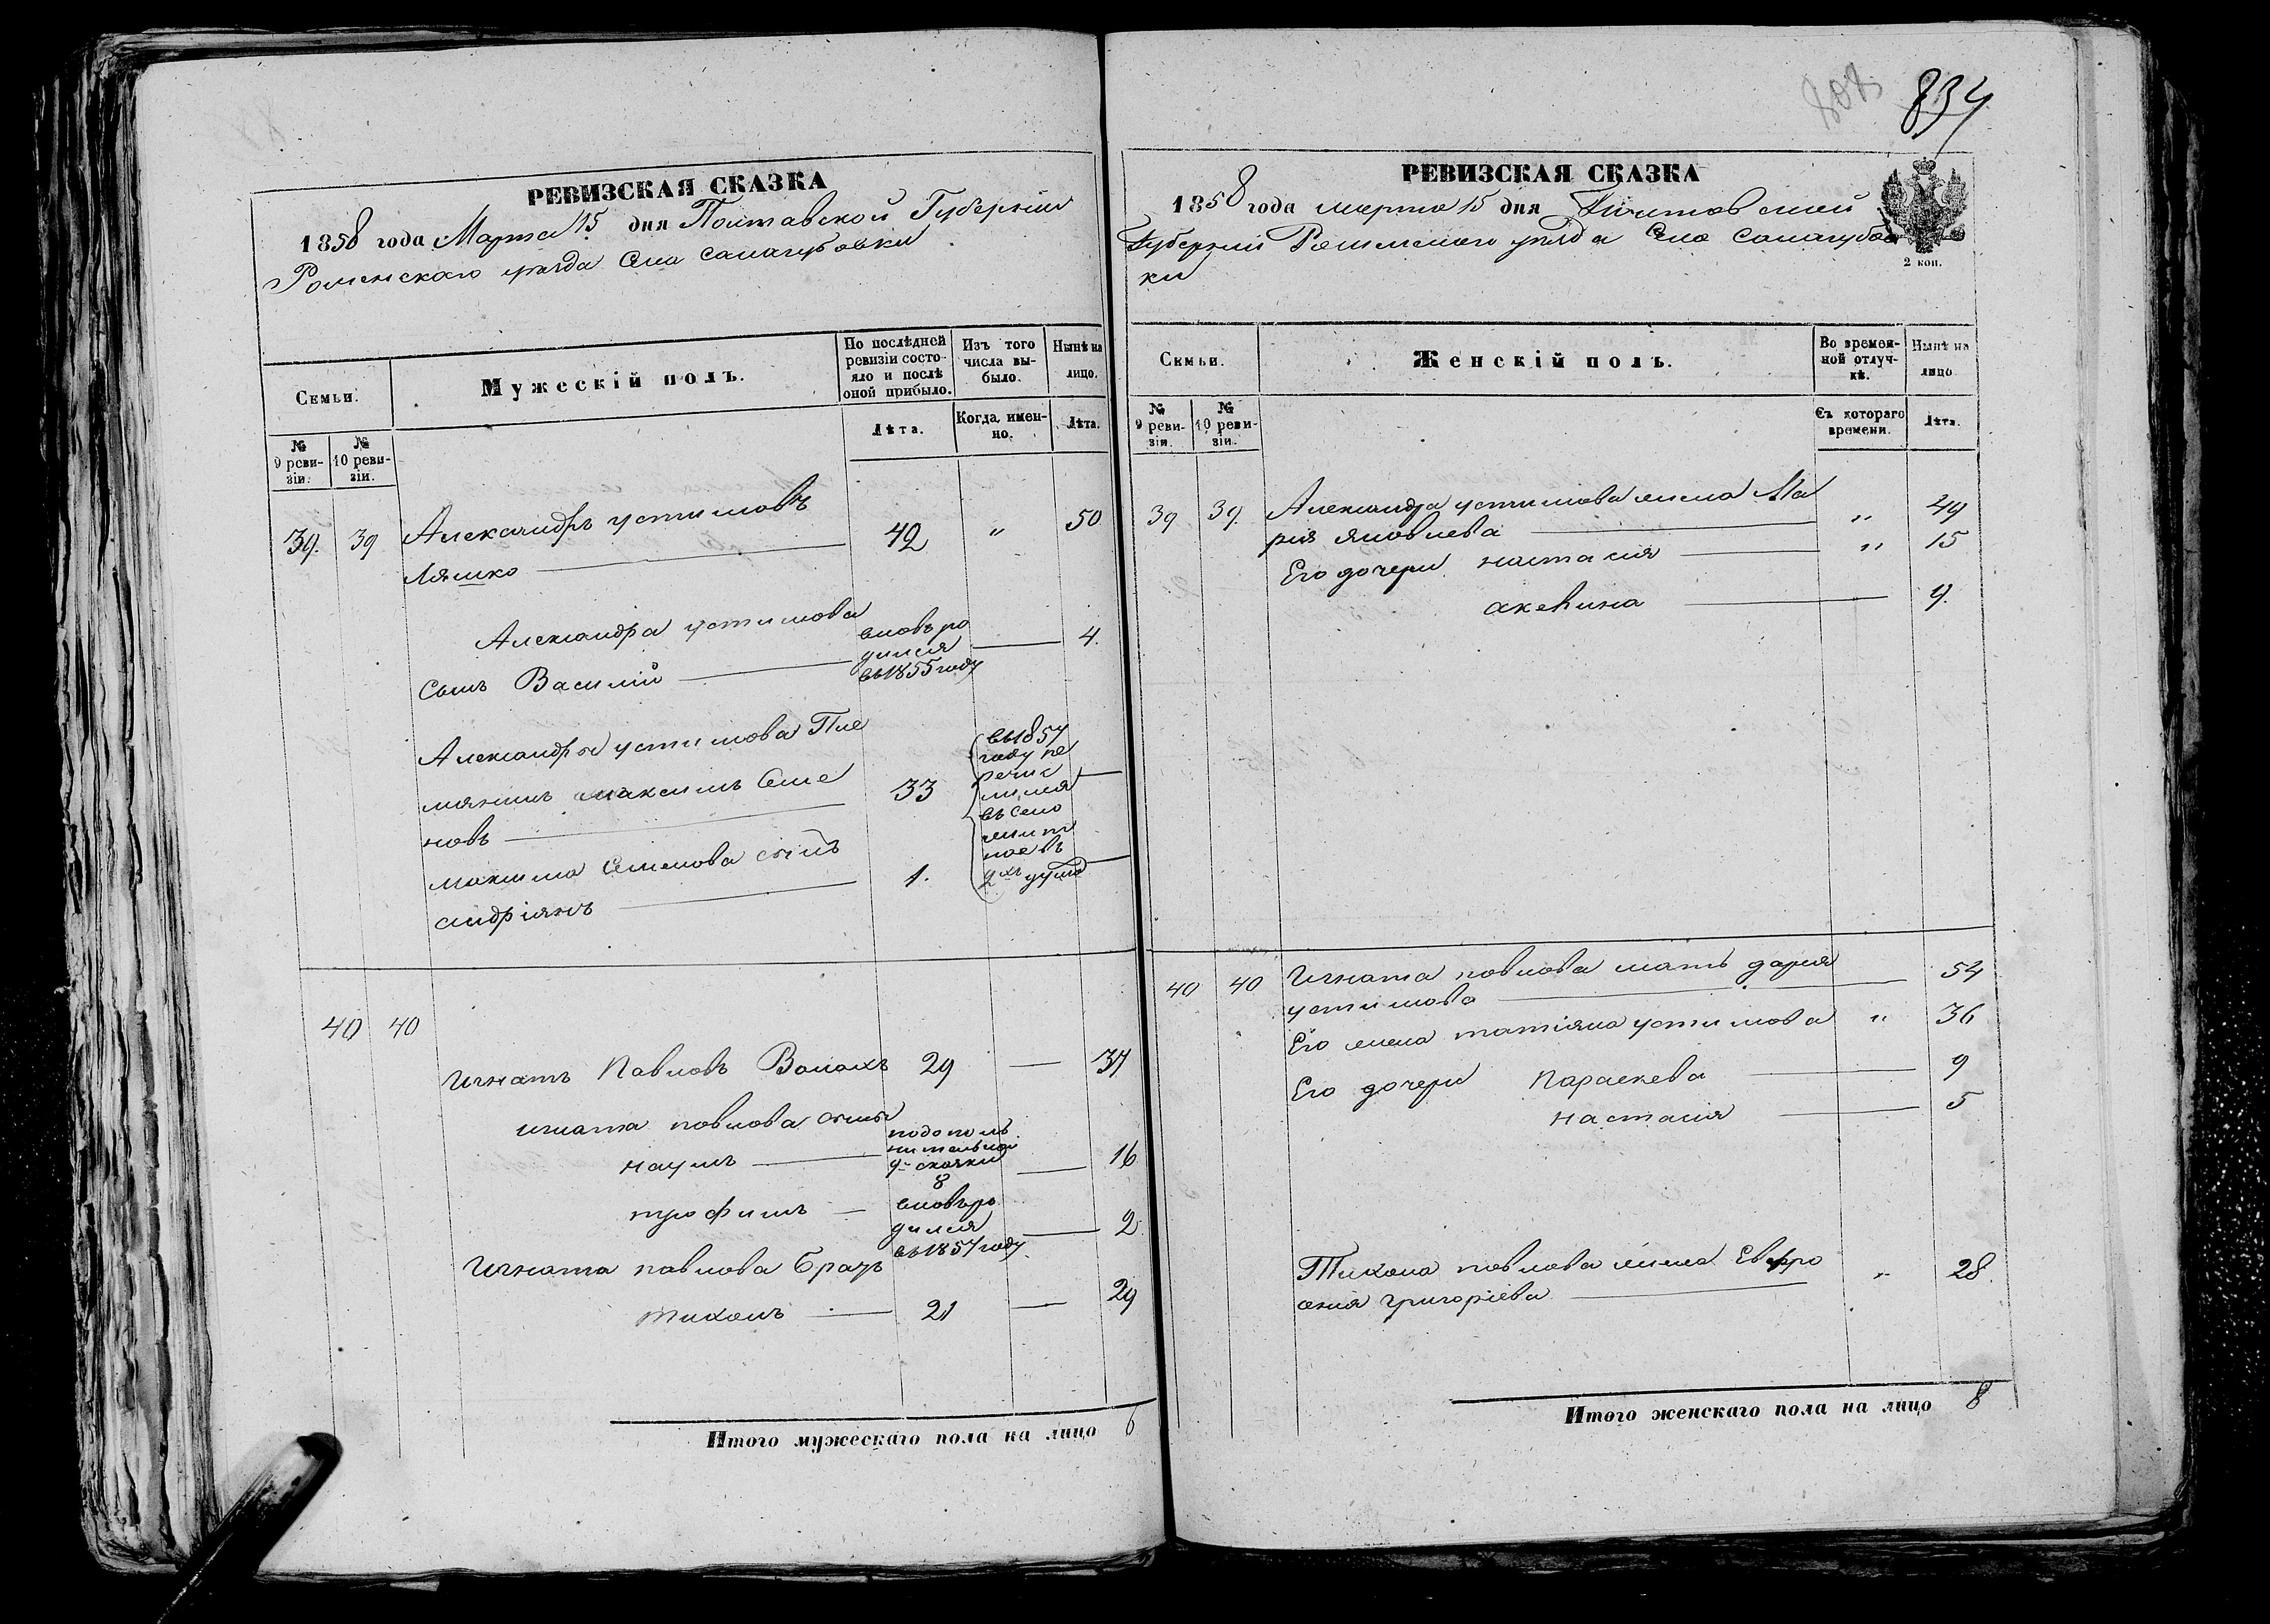 808
834
РЕВИЗСКАЯ СКАЗКА
1858 года Марта 15 дня Полтавской Губерніи
Роменскаго уѣзда Села Салагубовки
Семьи.
Мужескій полъ.
По послѣдней ревизіи состояло и послѣ оной прибыло.
Изъ того числа выбыло.
Нынѣ на лицо.
№ 9 ревизіи.
№ 10 ревизіи.
Лѣта.
Когда, именно.
Лѣта.
39. 39 Александръ устимовъ 42 „ 50
Ляшко
Александра устимова
сынъ Василій вновь ро
дился
въ 1855 году 4.
Александра устимова Пле
мянникъ максимъ Семе 33
новъ
максима Семенова сынъ 1.
андріянъ
въ 1857
году пе
речис
лился
въ село
40 40
Игнатъ Павловъ Волохъ 29 — 37
игната повлова сынъ
наумъ по дополъ
нительной
сказки
8
16
трофимъ — вновь ро
дился
въ 1857 году 2
Игната павлова братъ
тихонъ — 21 — 29
Итого мужескаго пола на лицо 6
РЕВИЗСКАЯ СКАЗКА
1858 года марта 15 дня Полтовской
Губерніи Роменскаго уезда Села Салагубов
ки
2 коп.
Семьи.
Женскій полъ.
Во временной отлучкѣ.
Нынѣ на лицо
№ 9 ревизіи.
№ 10 ревизіи.
Съ котораго времени.
Лѣта.
39 39. Александра устимова жена Ма
рія яковлева „ 49
Его дочери настасия „ 15
акевина 9.
40 40 Игната повлова мать дария 54
устимова
Его жена татіяна устимова „ 36
Его дочери параскева 9
настасія 5
Тихона повлова жена Евфро
сения григоріева „ 28.
Итого женскаго пола на лицо 8